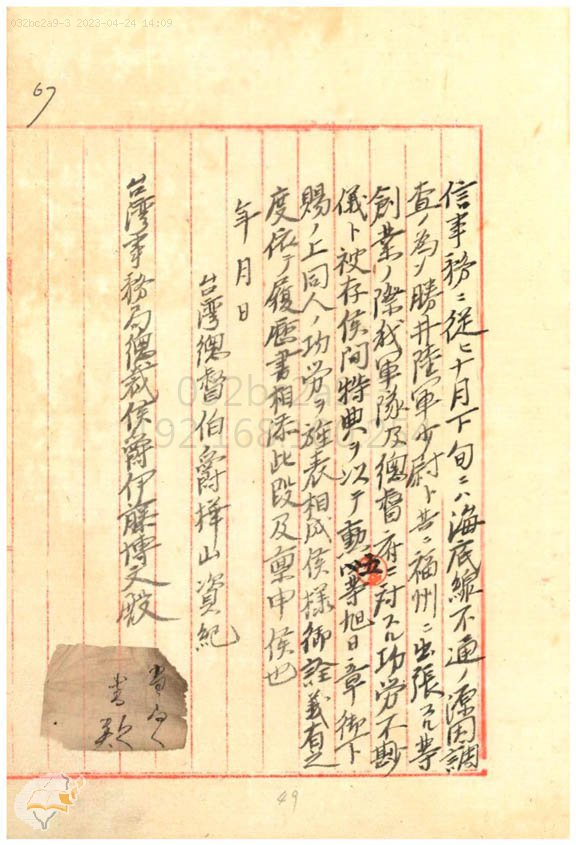 032bc2a9-3 2023-04-24 14:09
67
信事務ニ從ヒ十月下旬ニハ海底線不通ノ源因調
査ノ為メ勝井陸軍少尉ト共ニ福州ニ出張スル等
創業ノ際我軍隊及總督府ニ対スル功労不尠
儀ト被存候間特典ヲ以テ勲五等旭日章御下
賜ノ上同人ノ功労ヲ旌表相成候様御詮義有之
度依テ履歴書相添此段及稟申候也
年月日
台湾總督伯爵樺山資紀
台湾事務局總裁侯爵伊藤博文殿
49